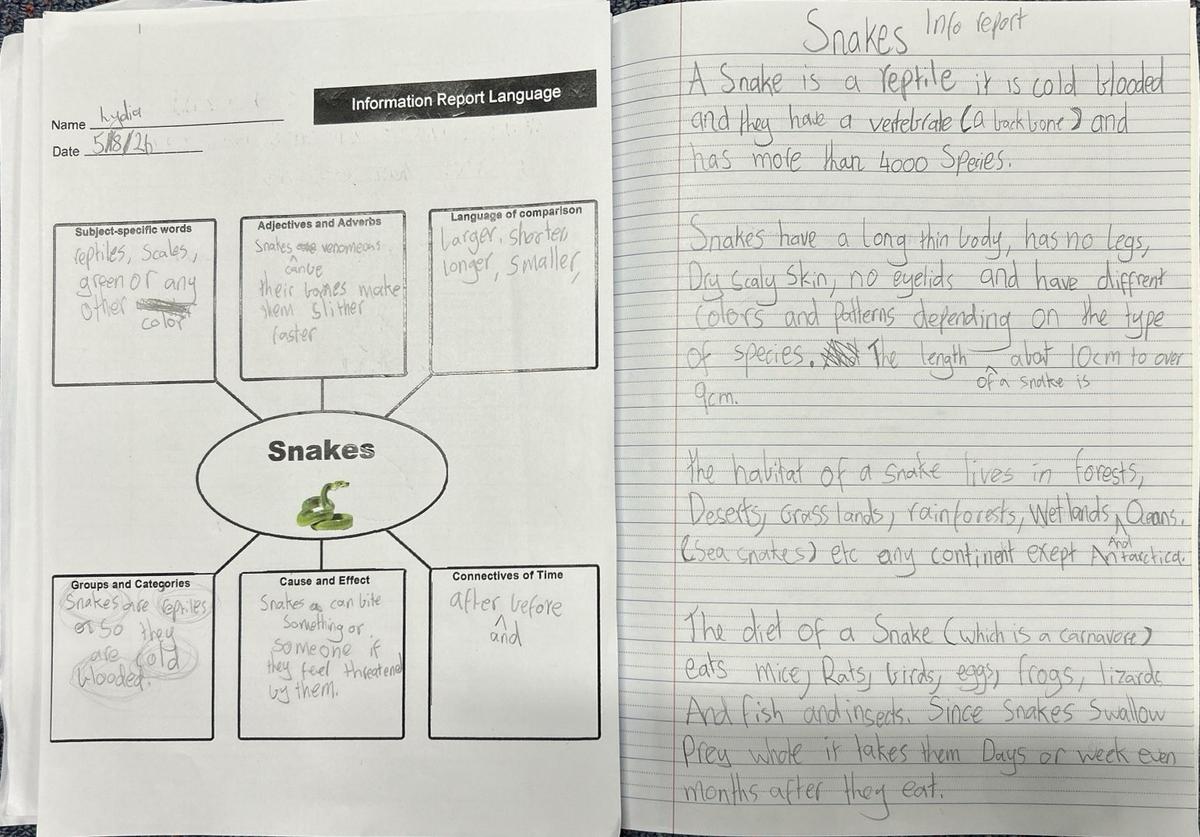 Information Report Language
Name Lydia
Date 5/8/26
Subject-specific words
reptiles, Scales,
green or any
other
color
Adjectives and Adverbs
Snakes venomeous
can be
their bones make
them slither
faster
Language of comparison
Larger, shorter,
longer, smaller,
Snakes
Groups and Categories
Snakes are reptiles
so they
are cold
blooded.
Cause and Effect
Snakes can bite
something or
someone if
they feel threatened
by them.
Connectives of Time
after before
and
Snakes Info report
A Snake is a reptile it is cold blooded
and they have a vertebrate (a back bone) and
has more than 4000 Species.
Snakes have a Long thin body, has no legs,
Dry scaly skin, no eyelids and have diffrent
colors and patterns depending on the type
of species. The length abat 10cm to over
of a snake is
9cm.
the habitat of a snake lives in forests,
Deserts, Grass lands, rainforests, Wetlands, Oceans.
And
(Sea snakes) etc any continent exept Antarctica.
The diet of a Snake (which is a carnavore)
eats mice, Rats, birds, eggs, frogs, lizards
And fish and insects. Since snakes Swallow
Prey whole it takes them Days or week even
months after they eat.